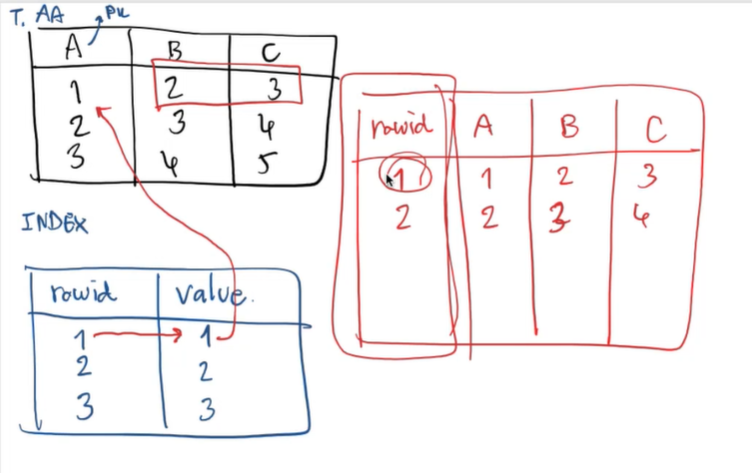 T. AA PK
A B C
1 2 3
2 3 4
3 4 5
INDEX
rowid value.
1 1
2 2
3 3
rowid A B C
1 1 2 3
2 2 3 4